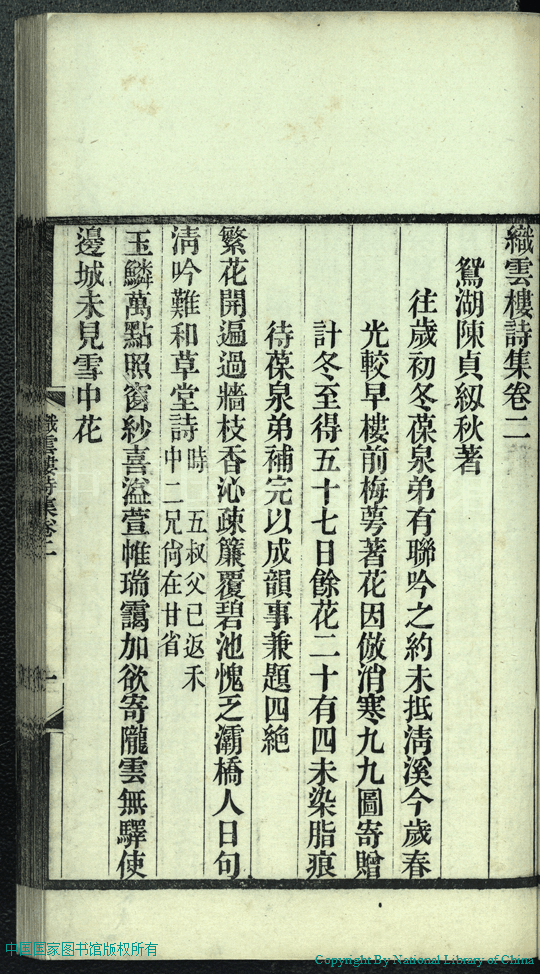 織雲樓詩集卷二
鴛湖陳貞級秋著
往歲初冬葆泉弟有聯吟之約未抵淸溪今歲春
光較早樓前梅萼著花因倣消寒九九圖寄贈
計冬至得五十七日餘花二十有四未染脂痕
待葆泉弟補完以成韻事兼題四絶
繁花開遍過牆枝香沁疎簾覆碧池愧乏灞橋人日句
淸吟難和草堂詩時五叔父已返禾
中二兄尙在甘省
玉鱗萬點照窗紗喜溢萱帷瑞靄加欲寄隴雲無驛使
邊城未見雪中花
織雲樓詩集卷二
一
中国国家图书馆版权所有
Copyright By National Library of China